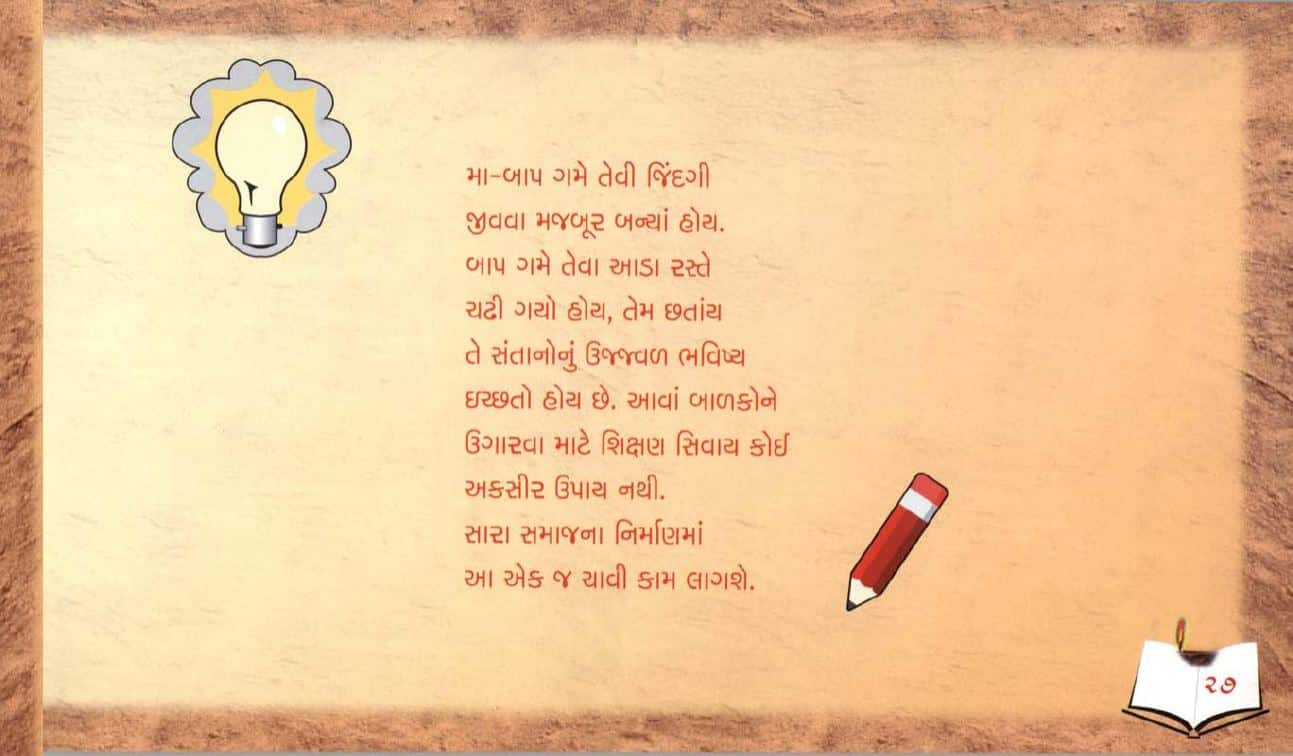 મા-બાપ ગમે તેવી જિંદગી
જીવવા મજબૂર બન્યાં હોય.
બાપ ગમે તેવા આડા રસ્તે
ચઢી ગયો હોય, તેમ છતાંય
તે સંતાનોનું ઉજ્જવળ ભવિષ્ય
ઇચ્છતો હોય છે. આવાં બાળકોને
ઉગારવા માટે શિક્ષણ સિવાય કોઈ
અકસીર ઉપાય નથી.
સારા સમાજના નિર્માણમાં
આ એક જ ચાવી કામ લાગશે.
૨૭